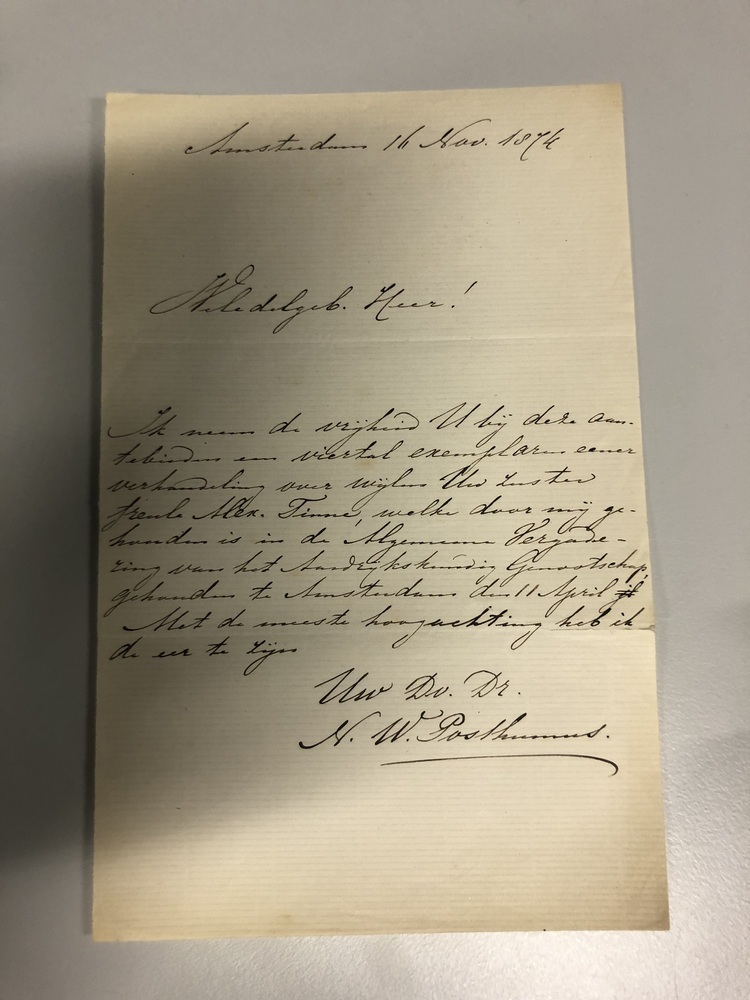 Amsterdam 16 Nov. 1874
Weledelgeb. Heer!
Ik neem de vrijheid U bij deze aan-
tebieden een viertal exemplaren eener
verhandeling over wijlen Uw zuster
freule Alex. Tinne, welke door mij ge-
houden is in de Algemeene Vergade-
ring van het Aardrijkskundig Genootschap,
gehouden te Amsterdam den 11 April
Met de meeste hoogachting heb ik
de eer te zijn
Uw Dv. Dr.
N. W. Posthumus.